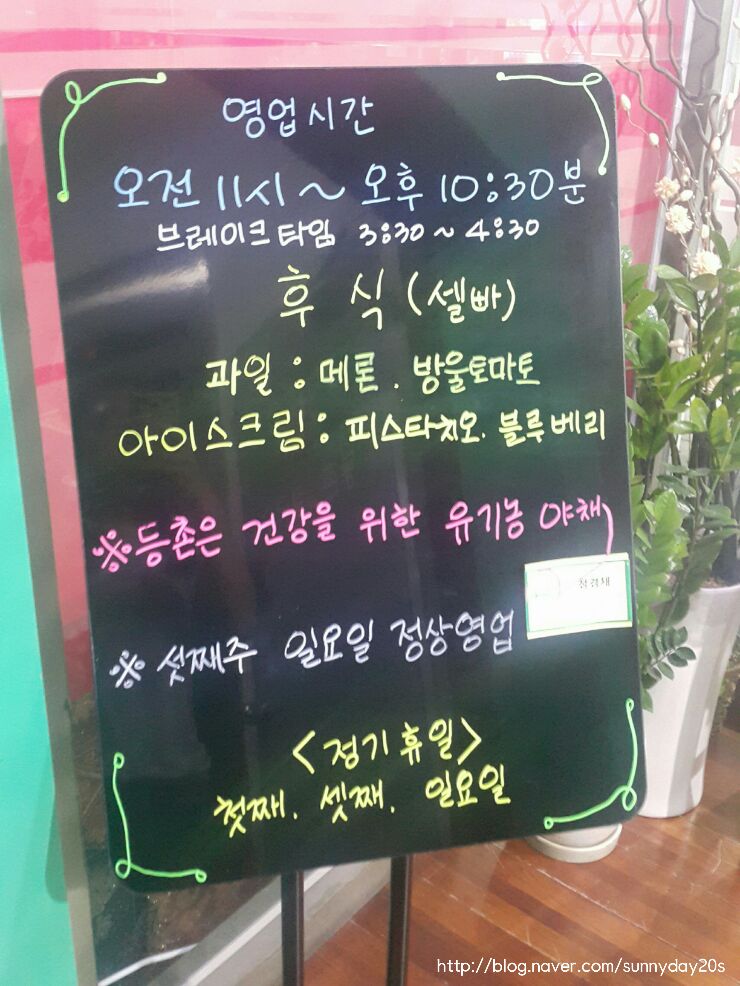 영업시간
오전 11시 ~ 오후 10:30분
브레이크타임 3:30 ~ 4:30
후식 (셀빠)
과일 : 메론 . 방울토마토
아이스크림 : 피스타치오. 블루베리
※등촌은 건강을 위한 유기농 야채
※ 셋째주 일요일 정상영업
<정기휴일>
첫째. 셋째. 일요일
http://blog.naver.com/sunnyday20s